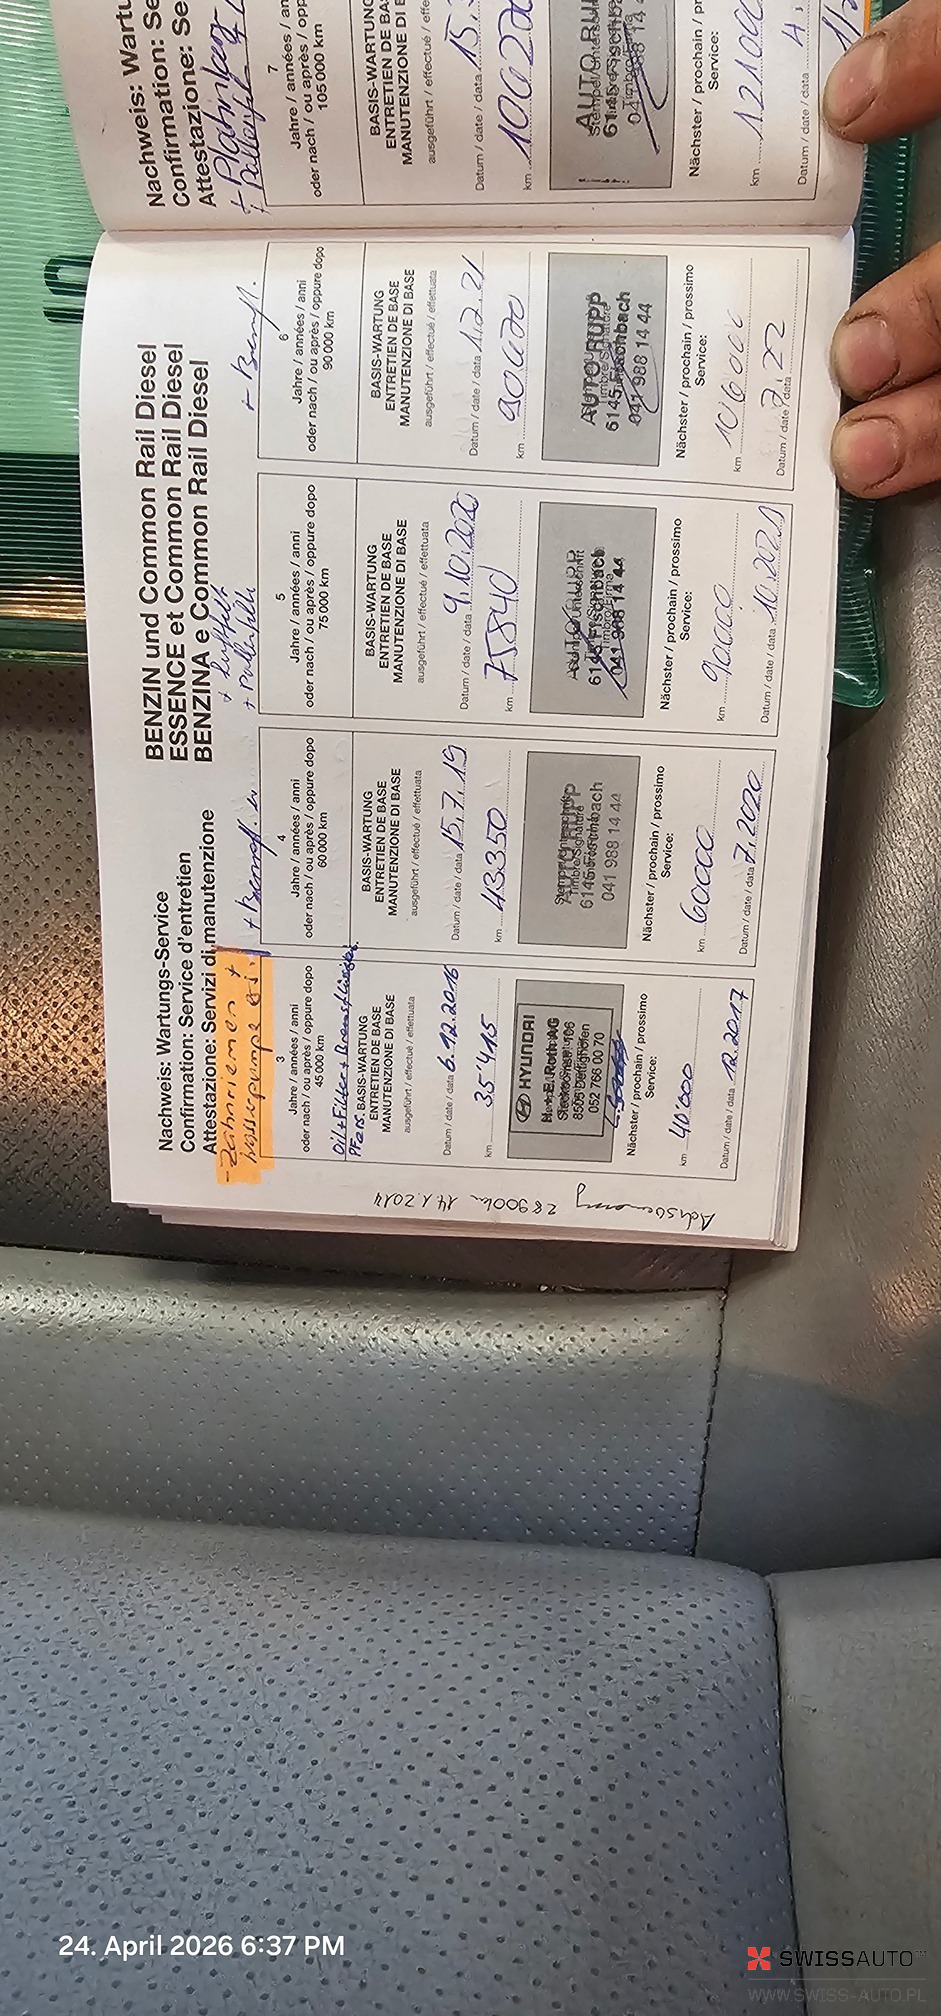 Nachweis: Wartungs-Service
Confirmation: Service d'entretien
Attestazione: Servizi di manutenzione
BENZIN und Common Rail Diesel
ESSENCE et Common Rail Diesel
BENZINA e Common Rail Diesel
- Zahnriemen +
3
Jahre / années / anni
oder nach / ou après / oppure dopo
45 000 km
Oil + Filter + Bremsflüssigk.
BASIS-WARTUNG
ENTRETIEN DE BASE
MANUTENZIONE DI BASE
ausgeführt / effectué / effettuata
Datum / date / data 6.12.2016
km 35'415
HYUNDAI
N. + E. Roth AG
052 766 00 70
Nächster / prochain / prossimo
Service:
km 40'000
Datum / date / data 12.2017
28900km 14.1.2014
4
Jahre / années / anni
oder nach / ou après / oppure dopo
60 000 km
BASIS-WARTUNG
ENTRETIEN DE BASE
MANUTENZIONE DI BASE
ausgeführt / effectué / effettuata
Datum / date / data 15.7.19
km 43350
AUTO RUPP
6145 Fischbach
041 988 14 44
Nächster / prochain / prossimo
Service:
km 60000
Datum / date / data 7.2020
+ Luftfilt
+ Pollenfilt
5
Jahre / années / anni
oder nach / ou après / oppure dopo
75 000 km
BASIS-WARTUNG
ENTRETIEN DE BASE
MANUTENZIONE DI BASE
ausgeführt / effectué / effettuata
Datum / date / data 9.10.2020
km 75840
AUTO RUPP
6145 Fischbach
041 988 14 44
Nächster / prochain / prossimo
Service:
km 90000
Datum / date / data 10.2021
6
Jahre / années / anni
oder nach / ou après / oppure dopo
90 000 km
BASIS-WARTUNG
ENTRETIEN DE BASE
MANUTENZIONE DI BASE
ausgeführt / effectué / effettuata
Datum / date / data 1.2.21
km 90670
AUTO RUPP
6145 Fischbach
041 988 14 44
Nächster / prochain / prossimo
Service:
km 106000
Datum / date / data 2.22
Nachweis: Wartu
Confirmation: Se
Attestazione: Se
+ Pollenfilt
7
Jahre / années / an
oder nach / ou après / opp
105 000 km
BASIS-WARTUNG
ENTRETIEN DE BA
MANUTENZIONE DI B
ausgeführt / effectué / effe
Datum / date / data 15.
km
AUTO RU
Nächster / prochain / pr
Service:
km 121000
Datum / date / data 4.
24. April 2026 6:37 PM
SWISSAUTO™
WWW.SWISS-AUTO.PL